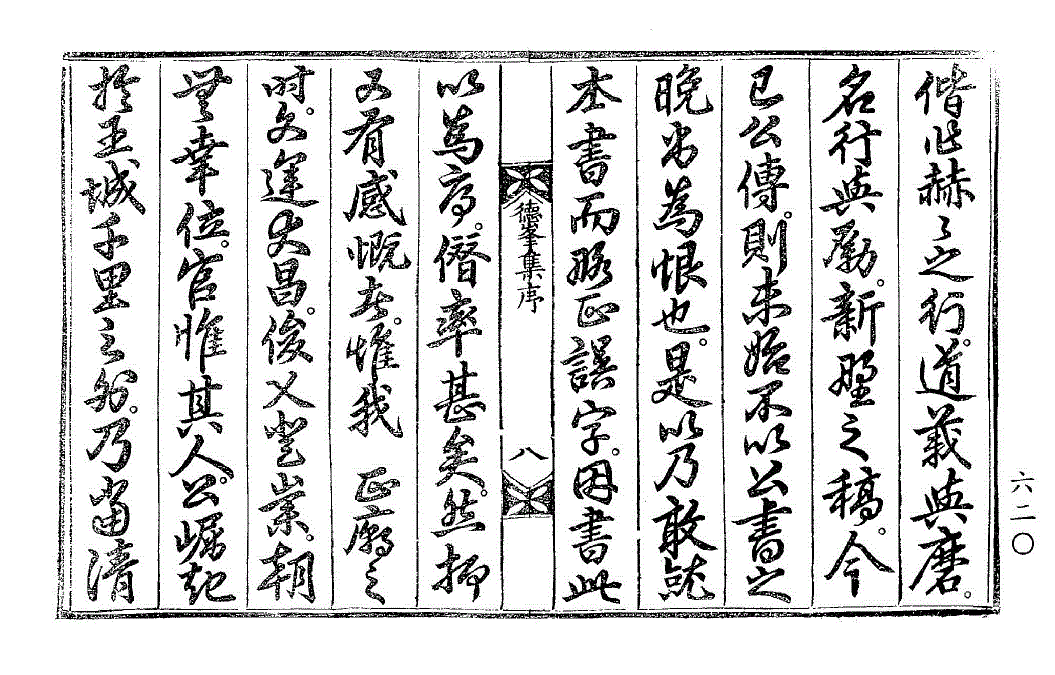 偕赫〻之行。道義與磨。
名行與勵。新野之稿。今
已公傳。則未始不以公書之
晚出為恨也。是以乃敢就
本書而略正誤字。因書此
德峯集序
八
以為序。僭率甚矣。然抑
又有感慨者。惟我 正廟之
时。文運大昌。俊乂登崇。朝
無幸位。官惟其人。公崛起
於王城千里之外。乃當清
六二〇